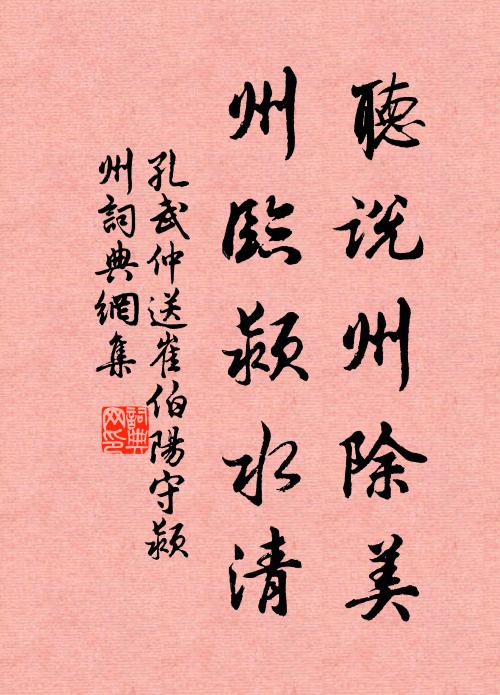 聽説州除美
州臨潁水清
孔武仲送崔伯陽守潁
州詞典網集
詞典
网印